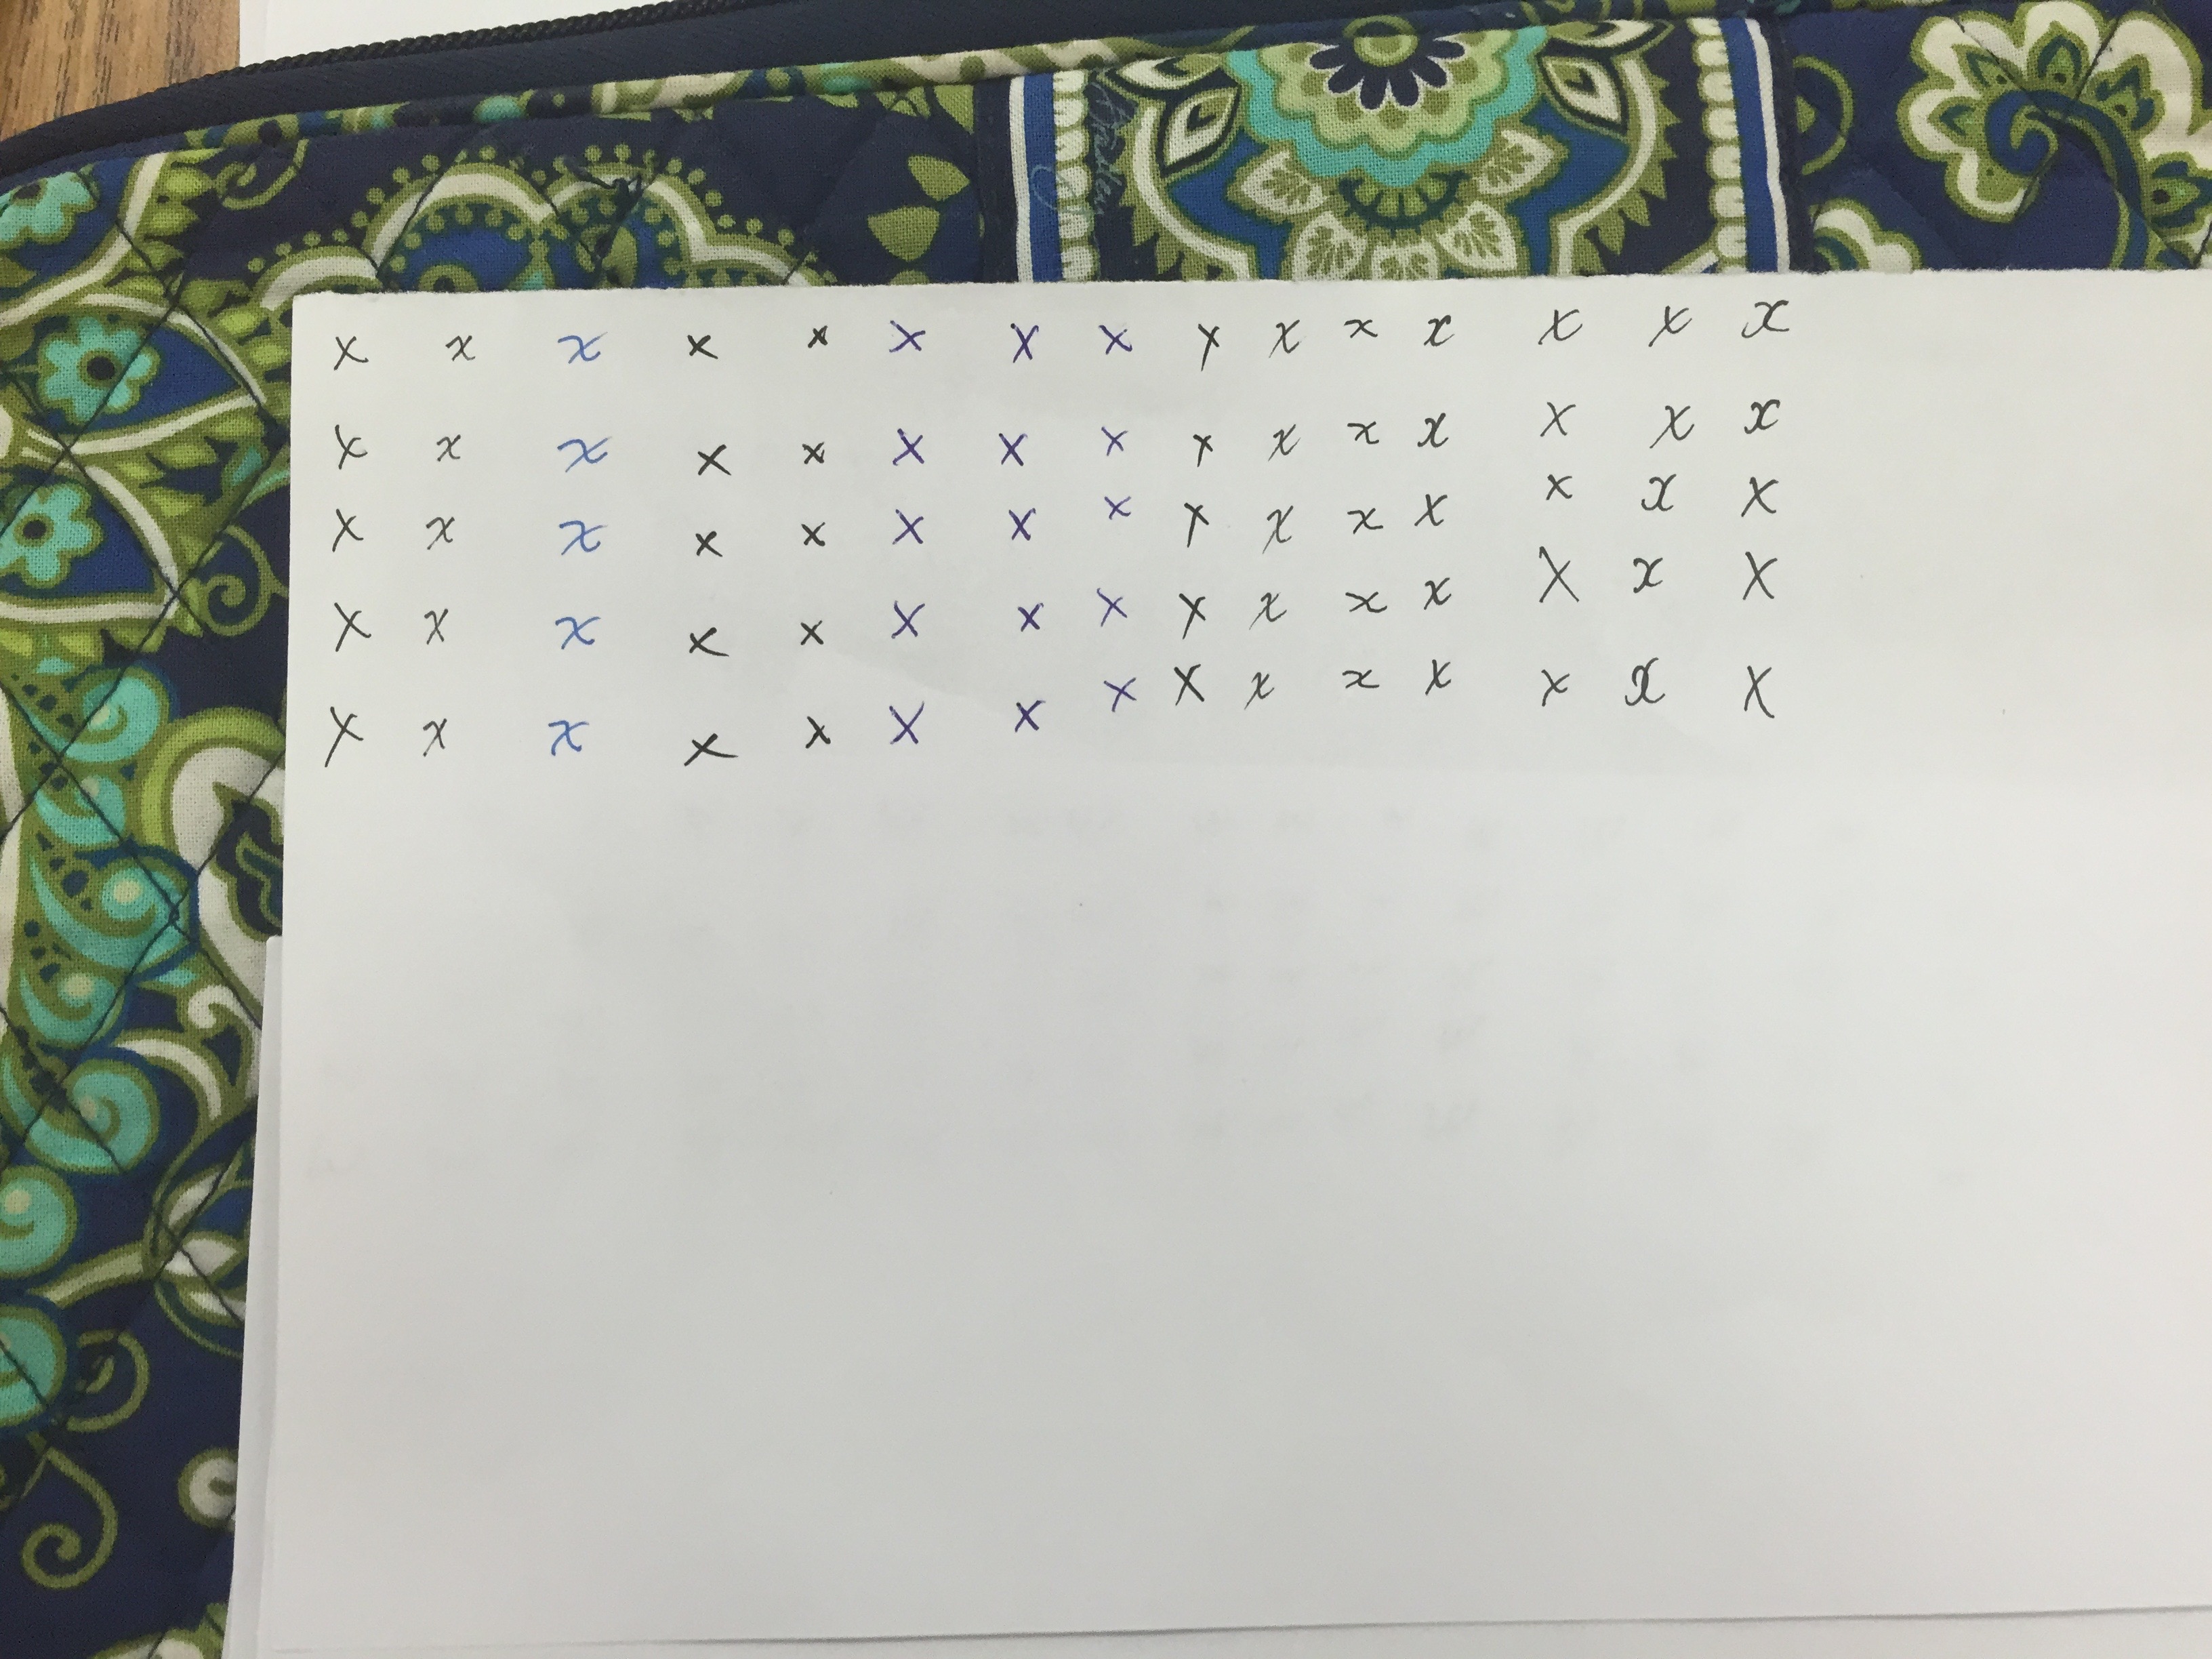 x x x x x x x x x x x x x x x
x x x x x x x x x x x x x x x
x x x x x x x x x x x x x x x
x x x x x x x x x x x x x x x
x x x x x x x x x x x x x x x